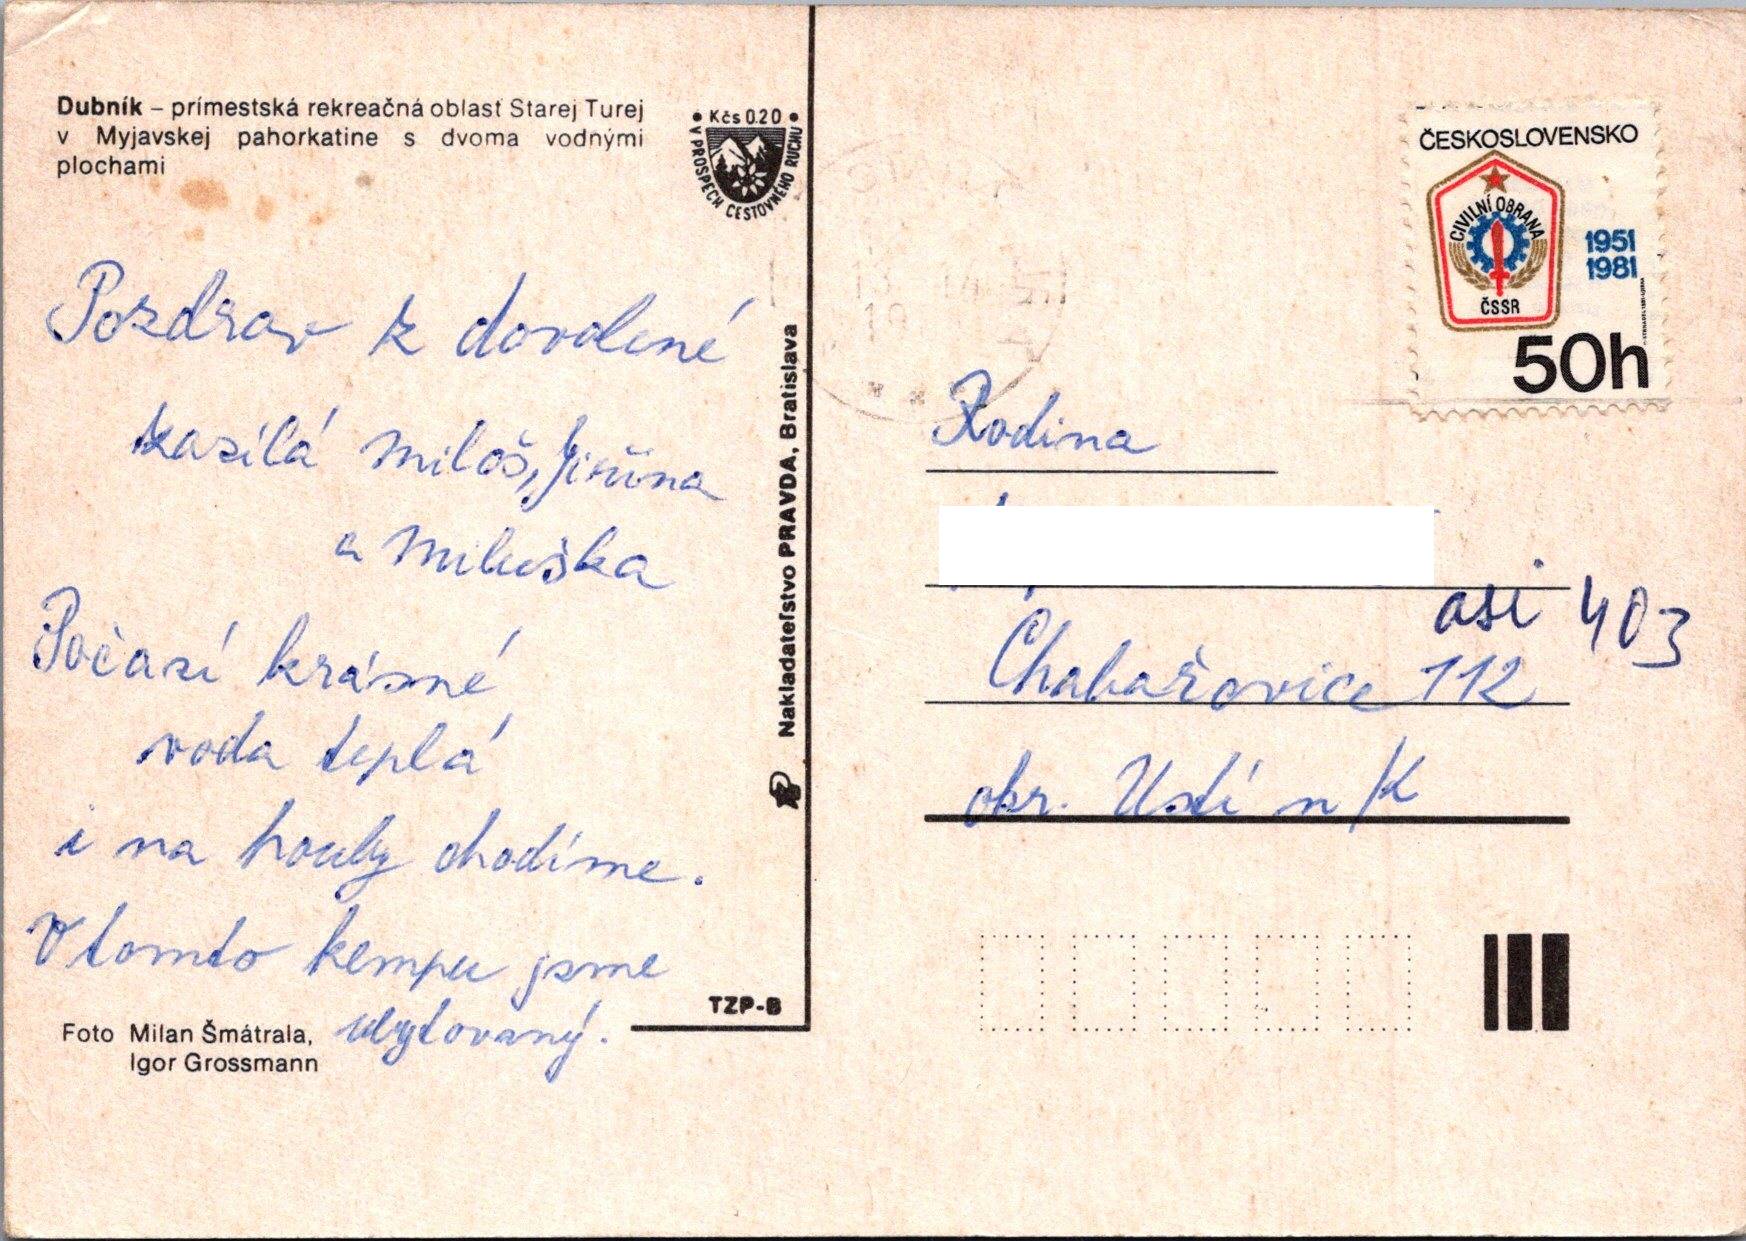 Dubník – prímestská rekreačná oblasť Starej Turej
v Myjavskej pahorkatine s dvoma vodnými
plochami
• Kčs 0.20 •
V PROSPECH CESTOVNÉHO RUCHU
Pozdrav z dovolené
zasílá Miloš, Jiřina
a Miluška
Počasí krásné
voda teplá
i na houby chodíme.
V tomto kempu jsme
ubytovaný.
Foto Milan Šmátrala,
Igor Grossmann
TZP-B
Nakladateľstvo PRAVDA, Bratislava
ČESKOSLOVENSKO
CIVILNÍ OBRANA
ČSSR
1951
1981
50h
Rodina
asi 403
Chabařovice 112
okr. Ustí n/L